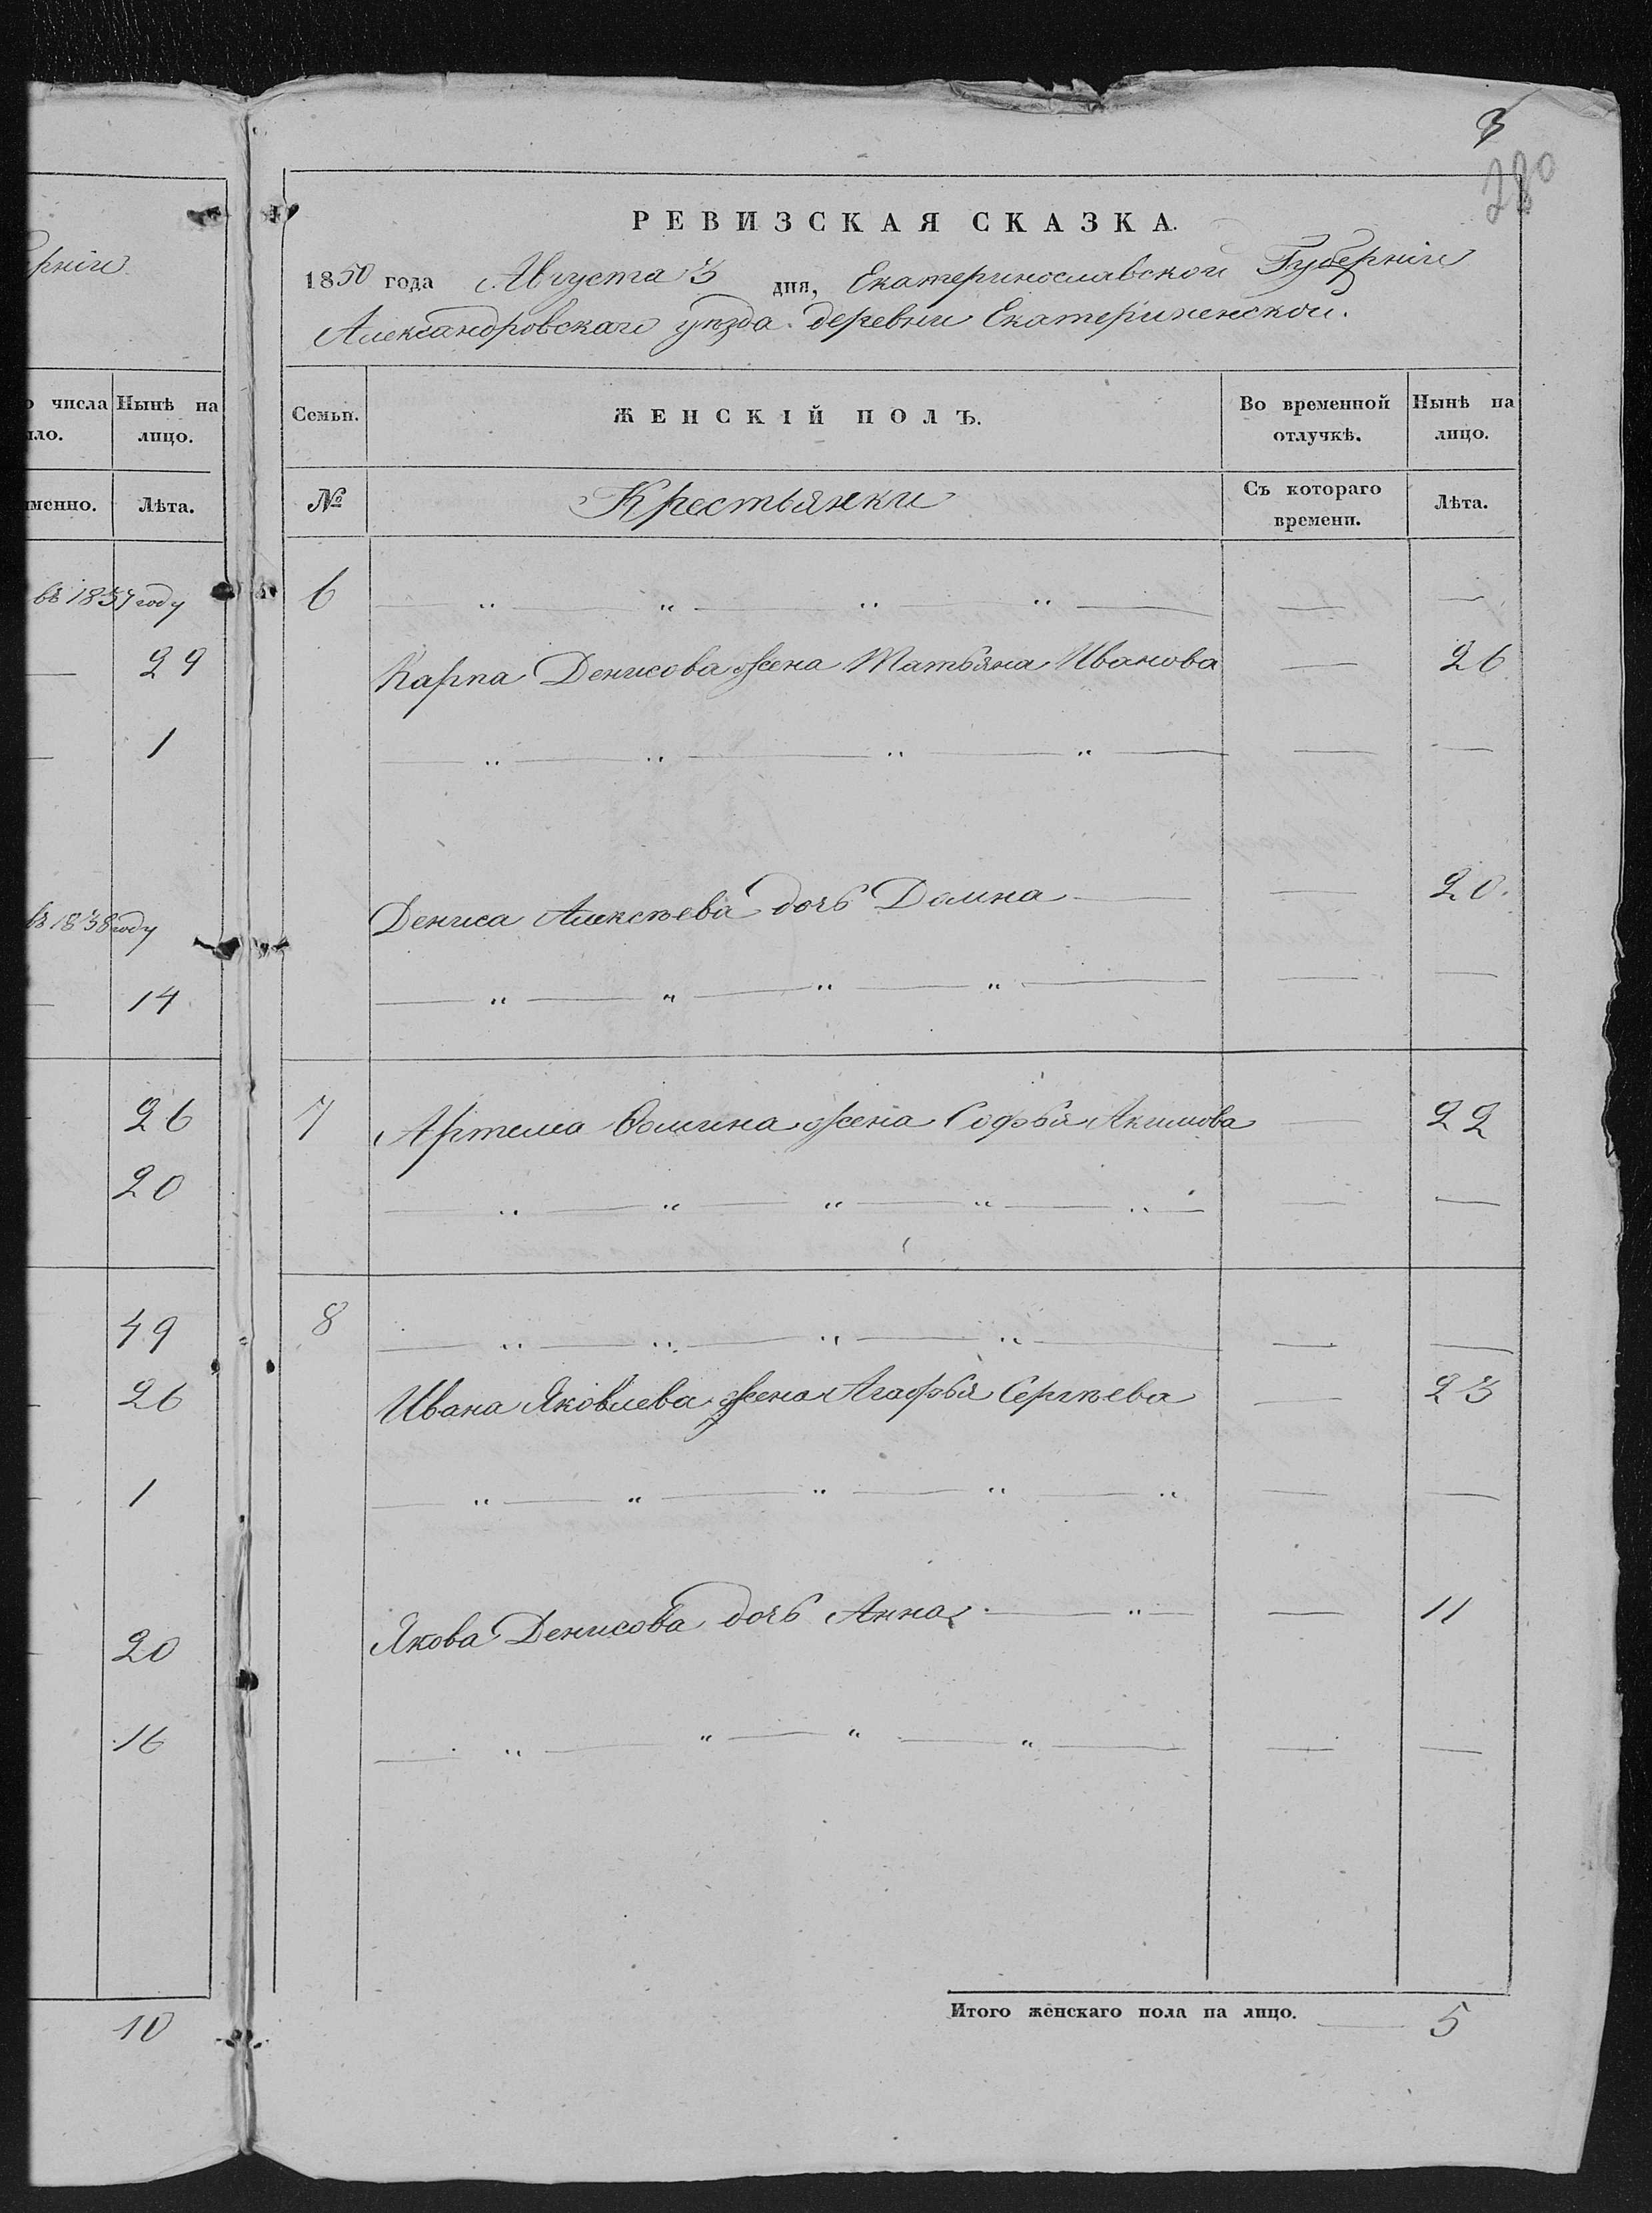 3
280
рніи
числа Нынѣ на
ло. лицо.
именно. Лѣта.
въ 1837 году
29
1
въ 1838 году
14
26
20
49
26
1
20
16
10
РЕВИЗСКАЯ СКАЗКА.
1850 года Августа 3 дня, Екатеринославской Губерніи
Александровскаго уѣзда деревни Екатериненской.
Семьи. ЖЕНСКІЙ ПОЛЪ. Во временной Нынѣ на
отлучкѣ. лицо.
№ Крестьянки Съ котораго Лѣта.
времени.
6 — „ — „ — „ — „ — — —
Карпа Денисова жена Татьяна Иванова — 26
— „ — „ — „ — „ — — —
Дениса Алексѣева дочь Домна — — 20.
— „ — „ — „ — „ — — —
7 Артема Ѳомина жена Софья Акимова — 22
— „ — „ — „ — „ — „ — — —
8 — „ — „ — „ — „ — — —
Ивана Яковлева жена Агафья Сергѣева — 23
— „ — „ — „ — „ — „ — —
Якова Денисова дочь Анна — „ — — 11
— „ — „ — „ — „ — — —
Итого женскаго пола на лицо. — 5